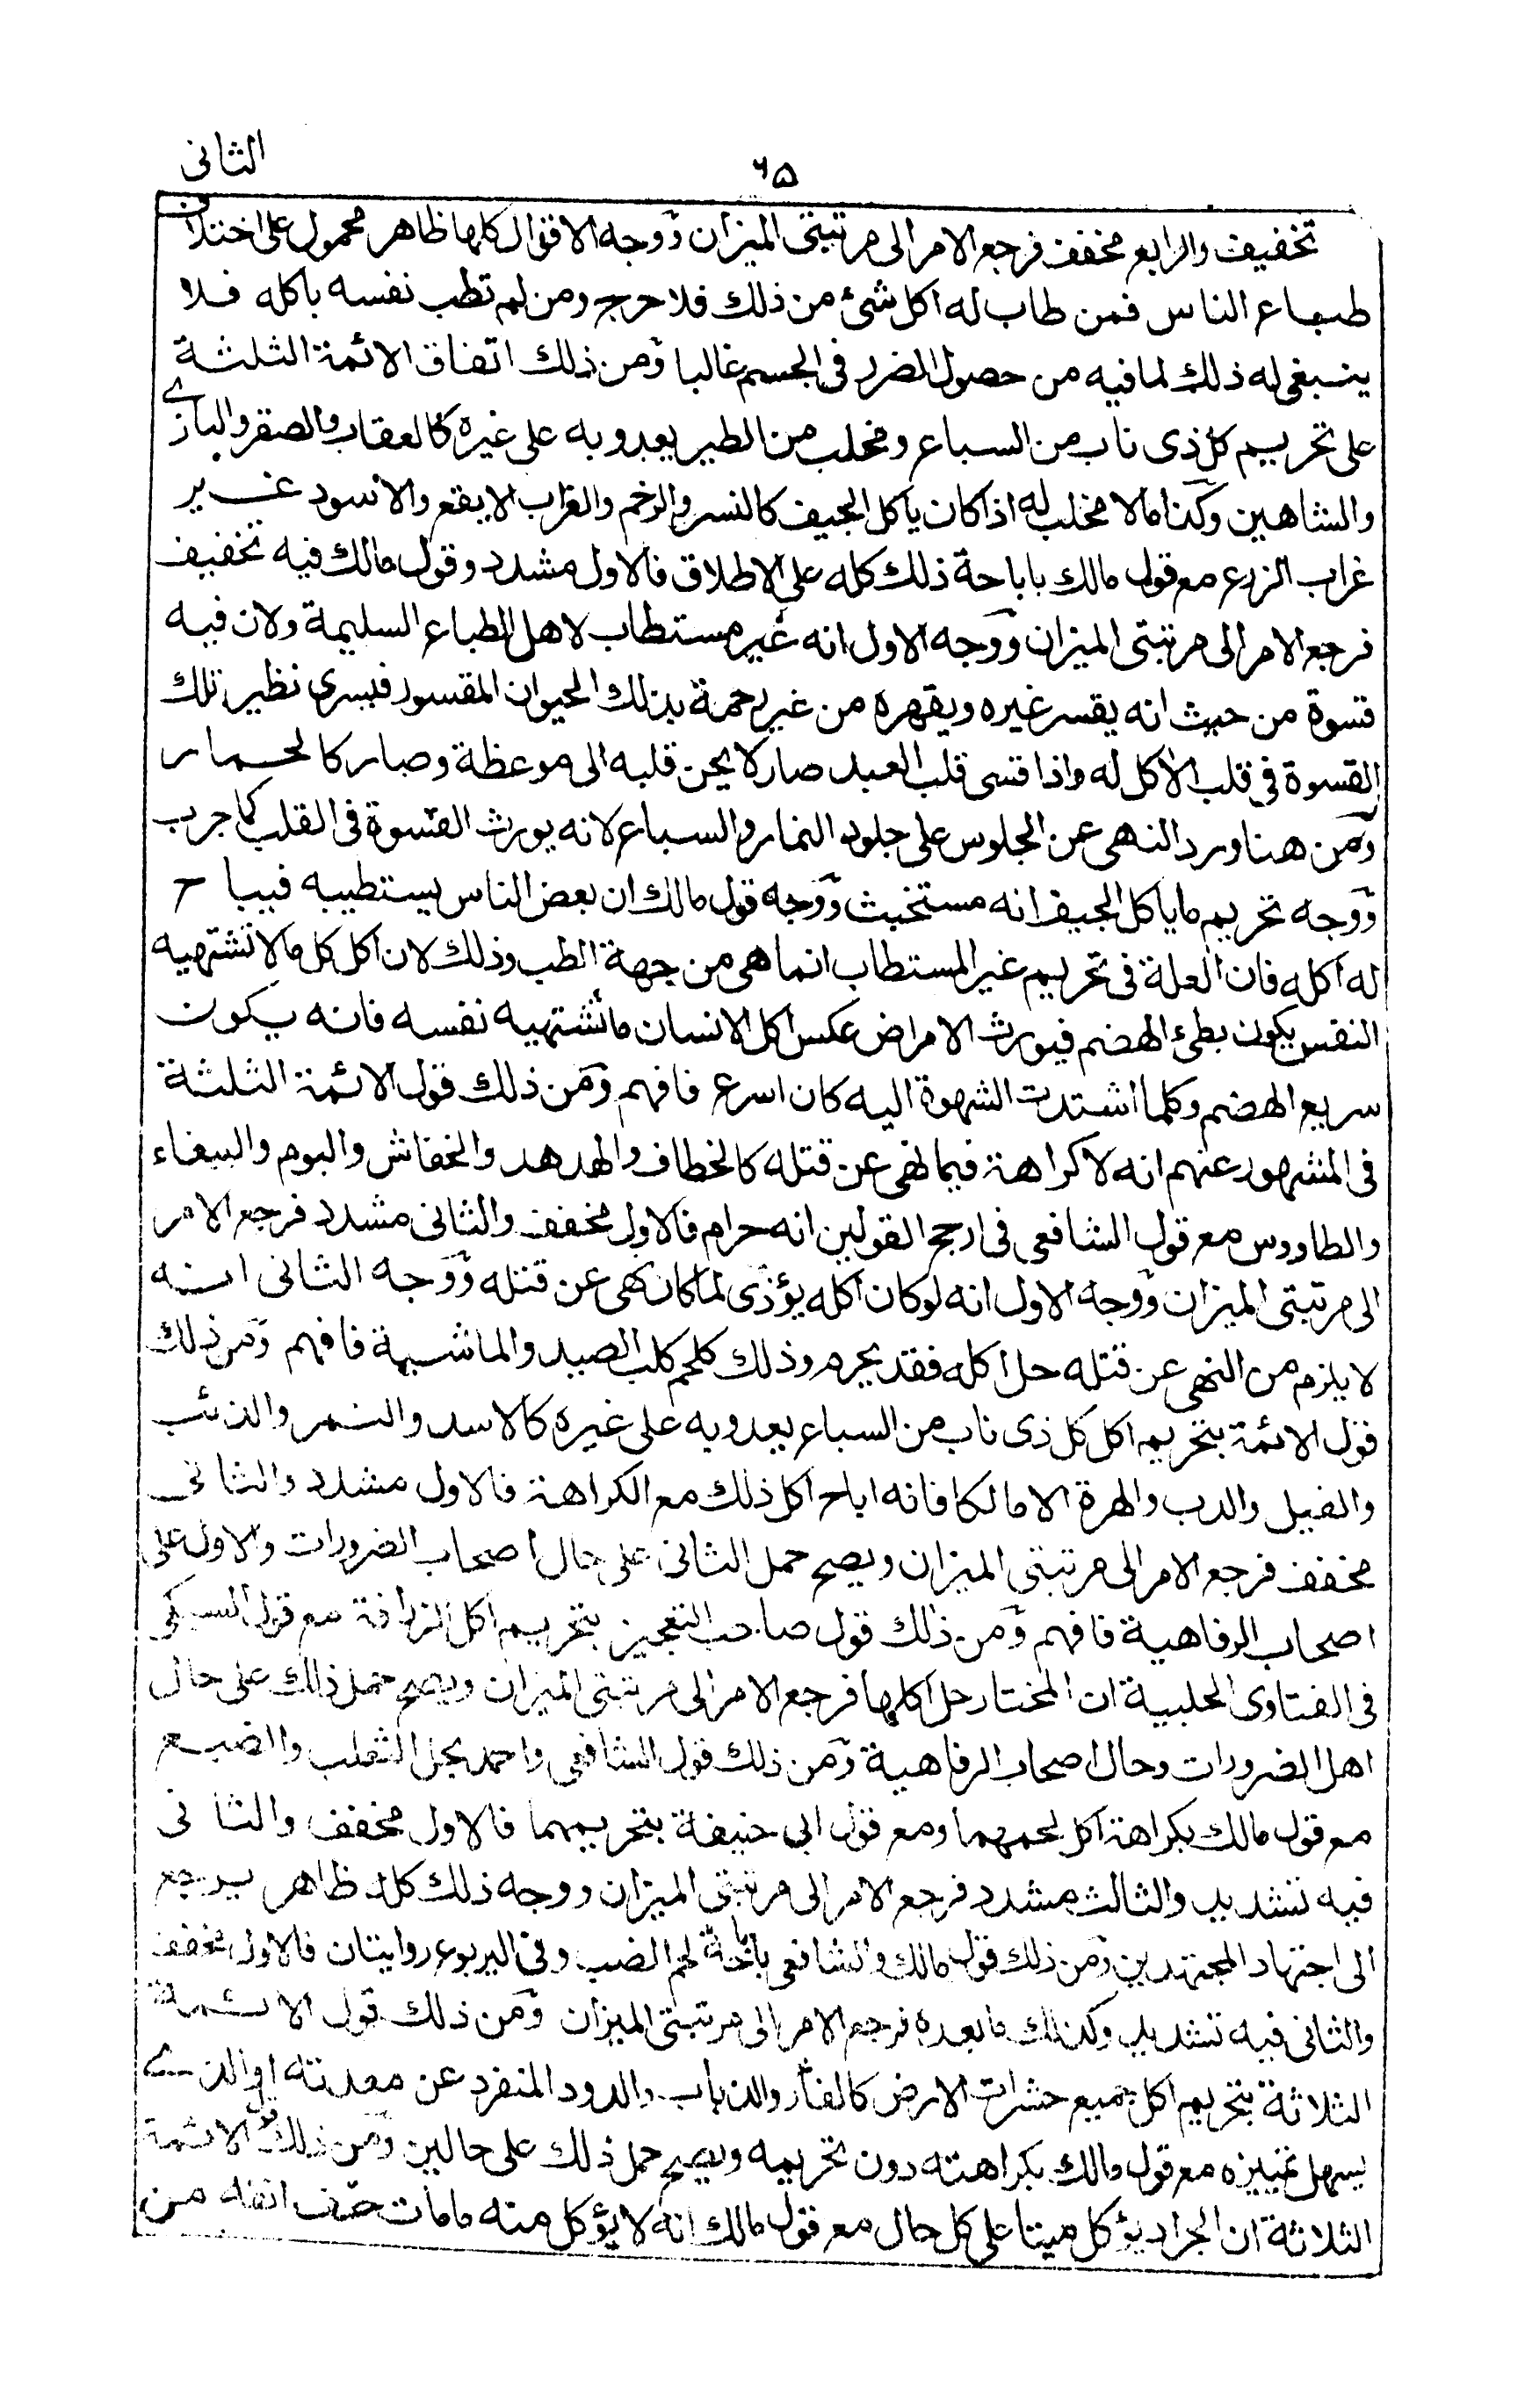 الثانى
٦٥
تخفيف والرابع مخفف فرجع الامر الى مرتبتى الميزان ووجه الاقوال كلها ظاهر محمول على اختلاف
طباع الناس فمن طاب له اكل شئ من ذلك فلا حرج ومن لم تطب نفسه باكله فلا
ينبغى له ذلك لما فيه من حصول الضرر فى الجسم غالبا ومن ذلك اتفاق الائمة الثلثة
على تحريم كل ذى ناب من السباع ومخلب من الطير يعدو به على غيره كالعقاب والصقر والبازى
والشاهين وكذا ما لا مخلب له اذا كان ياكل الجيف كالنسر والرخم والغراب الابقع والاسود غير
غراب الزرع مع قول مالك باباحة ذلك كله على الاطلاق فالاول مشدد وقول مالك فيه تخفيف
فرجع الامر الى مرتبتى الميزان ووجه الاول انه غير مستطاب لاهل الطباع السليمة ولان فيه
قسوة من حيث انه يقسر غيره ويقهره من غير رحمة بذلك الحيوان المقسور فيسرى نظير تلك
القسوة فى قلب الاكل له واذا قسى قلب العبد صار لا يحن قلبه الى موعظة وصار كالحمار
ومن هنا ورد النهى عن الجلوس على جلود النمار والسباع لانه يورث القسوة فى القلب كما جرب
ووجه تحريم ما ياكل الجيف انه مستخبث ووجه قول مالك ان بعض الناس يستطيبه فيباح
له اكله فان العلة فى تحريم غير المستطاب انما هى من جهة الطب وذلك لان اكل كل ما لا تشتهيه
النفس يكون بطئ الهضم فيورث الامراض عكس اكل الانسان ما تشتهيه نفسه فانه يكون
سريع الهضم وكلما اشتدت الشهوة اليه كان اسرع فافهم ومن ذلك قول الائمة الثلثة
فى المشهور عنهم انه لا كراهة فيما نهى عن قتله كالخطاف والهدهد والخفاش والبوم والببغاء
والطاووس مع قول الشافعى فى ارجح القولين انه حرام فالاول مخفف والثانى مشدد فرجع الامر
الى مرتبتى الميزان ووجه الاول انه لو كان اكله يؤذى لما كان نهى عن قتله ووجه الثانى انه
لا يلزم من النهى عن قتله حل اكله فقد يحرم وذلك كلحم كلب الصيد والماشية فافهم ومن ذلك
قول الائمة بتحريم اكل كل ذى ناب من السباع يعدو به على غيره كالاسد والنمر والذئب
والفيل والدب والهرة الا مالكا فانه اباح اكل ذلك مع الكراهة فالاول مشدد والثانى
مخفف فرجع الامر الى مرتبتى الميزان ويصح حمل الثانى على حال اصحاب الضرورات والاول على
اصحاب الرفاهية فافهم ومن ذلك قول صاحب التعجيز بتحريم اكل الزرافة مع قول السبكى
فى الفتاوى الحلبية ان المختار حل اكلها فرجع الامر الى مرتبتى الميزان ويصح حمل ذلك على حال
اهل الضرورات وحال اصحاب الرفاهية ومن ذلك قول الشافعى واحمد بحل الثعلب والضبع
مع قول مالك بكراهة اكل لحمهما ومع قول ابى حنيفة بتحريمهما فالاول مخفف والثانى
فيه تشديد والثالث مشدد فرجع الامر الى مرتبتى الميزان ووجه ذلك كله ظاهر يرجع
الى اجتهاد المجتهدين ومن ذلك قول مالك والشافعى باباحة لحم الضب وفى اليربوع روايتان فالاول مخفف
والثانى فيه تشديد وكذلك ما بعده فرجع الامر الى مرتبتى الميزان ومن ذلك قول الائمة
الثلاثة بتحريم اكل جميع حشرات الارض كالفأر والذباب والدود المنفرد عن معدنه او الذى
يسهل تمييزه مع قول مالك بكراهته دون تحريمه ويصح حمل ذلك على حالين ومن ذلك قول الائمة
الثلاثة ان الجراد يؤكل ميتا على كل حال مع قول مالك انه لا يؤكل منه ما مات حتف انفه من